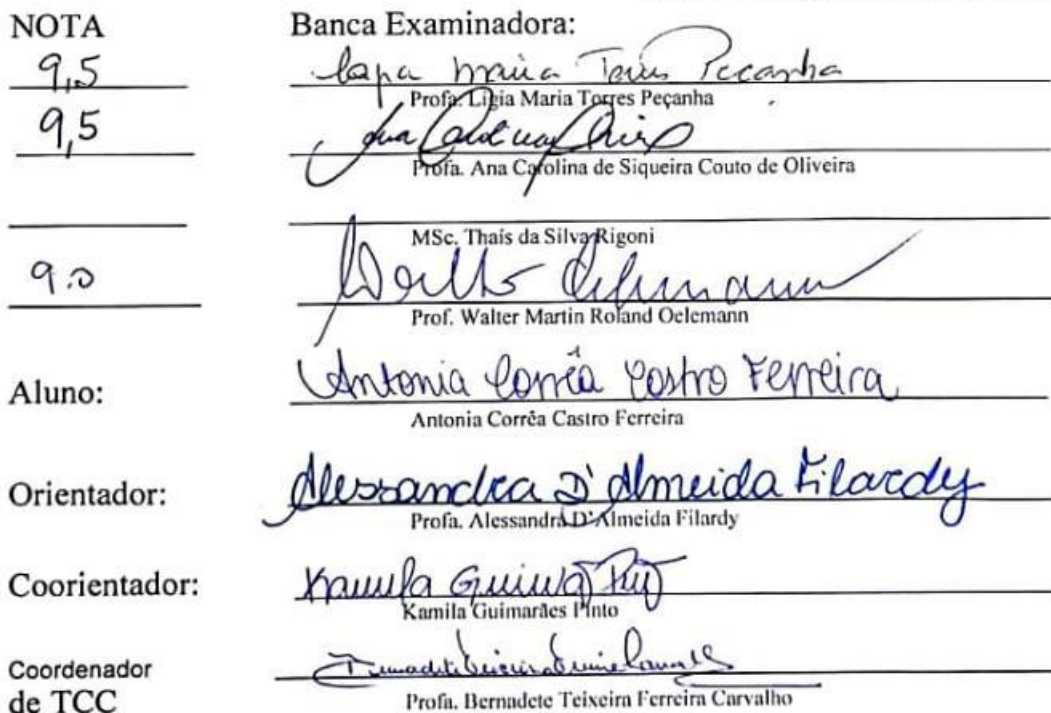 NOTA Banca Examinadora:
9,5 Maria Peçanha
Profa. Ligia Maria Torres Peçanha
9,5 Ana
Profa. Ana Carolina de Siqueira Couto de Oliveira
MSc. Thaís da Silva Rigoni
9.0 Oelemann
Prof. Walter Martin Roland Oelemann
Aluno: Antonia Corrêa Castro Ferreira
Antonia Corrêa Castro Ferreira
Orientador: Alessandra D'Almeida Filardy
Profa. Alessandra D'Almeida Filardy
Coorientador: Kamila
Kamila Guimarães Pinto
Coordenador
de TCC Profa. Bernadete Teixeira Ferreira Carvalho